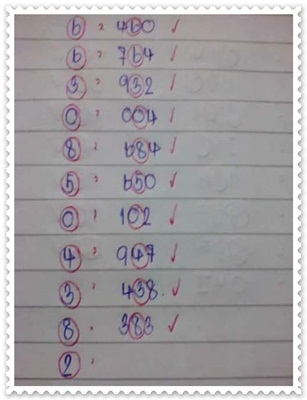 6 : 460 ✓
6 : 764 ✓
3 : 932 ✓
0 : 004 ✓
8 : 684 ✓
5 : 650 ✓
0 : 102 ✓
4 : 947 ✓
3 : 438. ✓
8 : 383 ✓
2 :